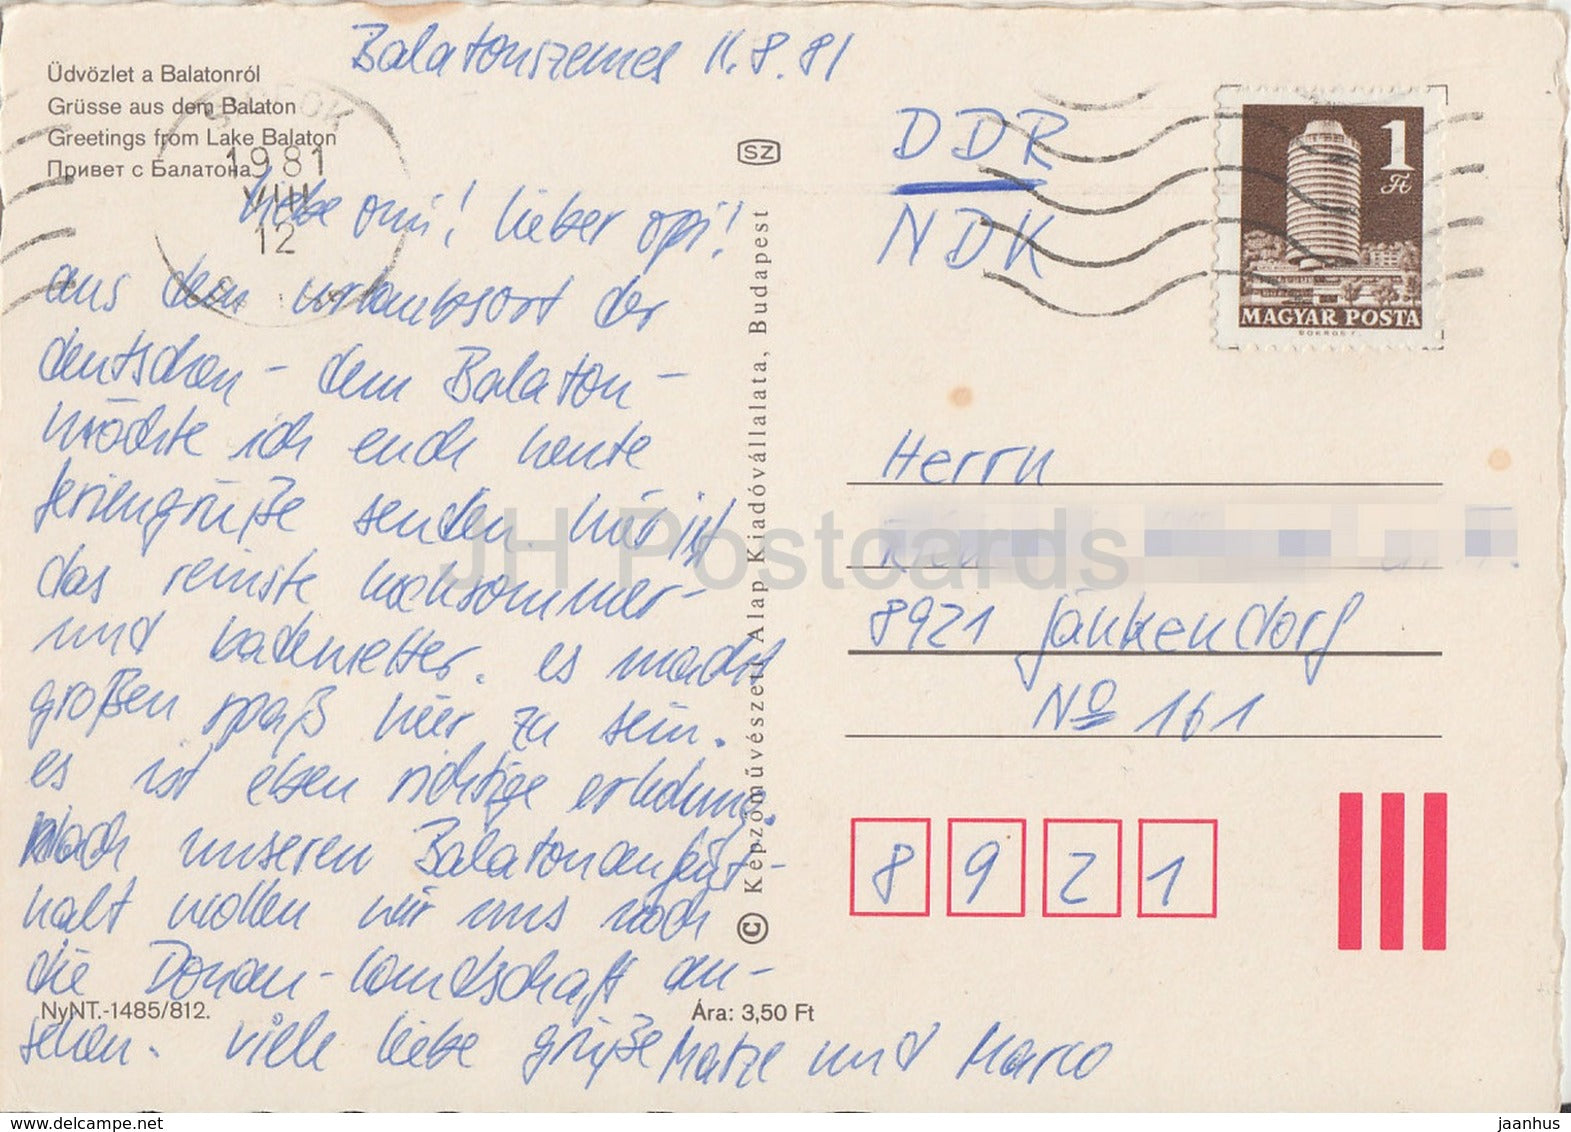 Balatonszemes 11.8.81
Üdvözlet a Balatonról
Grüsse aus dem Balaton
Greetings from Lake Balaton
Привет с Балатона
SIÓFOK
1981
VIII
12
liebe omi! lieber opi!
aus dem urlaubsort der
deutschen - dem Balaton -
möchte ich euch heute
feriengrüße senden. hier ist
das reinste hochsommer-
und badewetter. es macht
großen spaß hier zu sein.
es ist eben richtige erholung.
nach unseren Balatonaufent-
halt wollen wir uns noch
die Donau-landschaft an-
sehen. viele liebe grüße Matze und Marco
NyNT.-1485/812.
Ára: 3,50 Ft
SZ
© Képzőművészeti Alap Kiadóvállalata, Budapest
DDR
NDK
1 Ft
MAGYAR POSTA
BOKROS F.
Herrn
8921 Jänkendorf
No 161
8 9 2 1
JH Postcards
www.delcampe.net
jaanhus